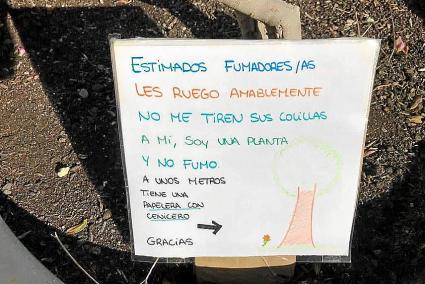 ESTIMADOS FUMADORES/AS
LES RUEGO AMABLEMENTE
NO ME TIREN SUS COLILLAS
A MÍ, SOY UNA PLANTA
Y NO FUMO.
A UNOS METROS
TIENE UNA
PAPELERA CON
CENICERO
GRACIAS